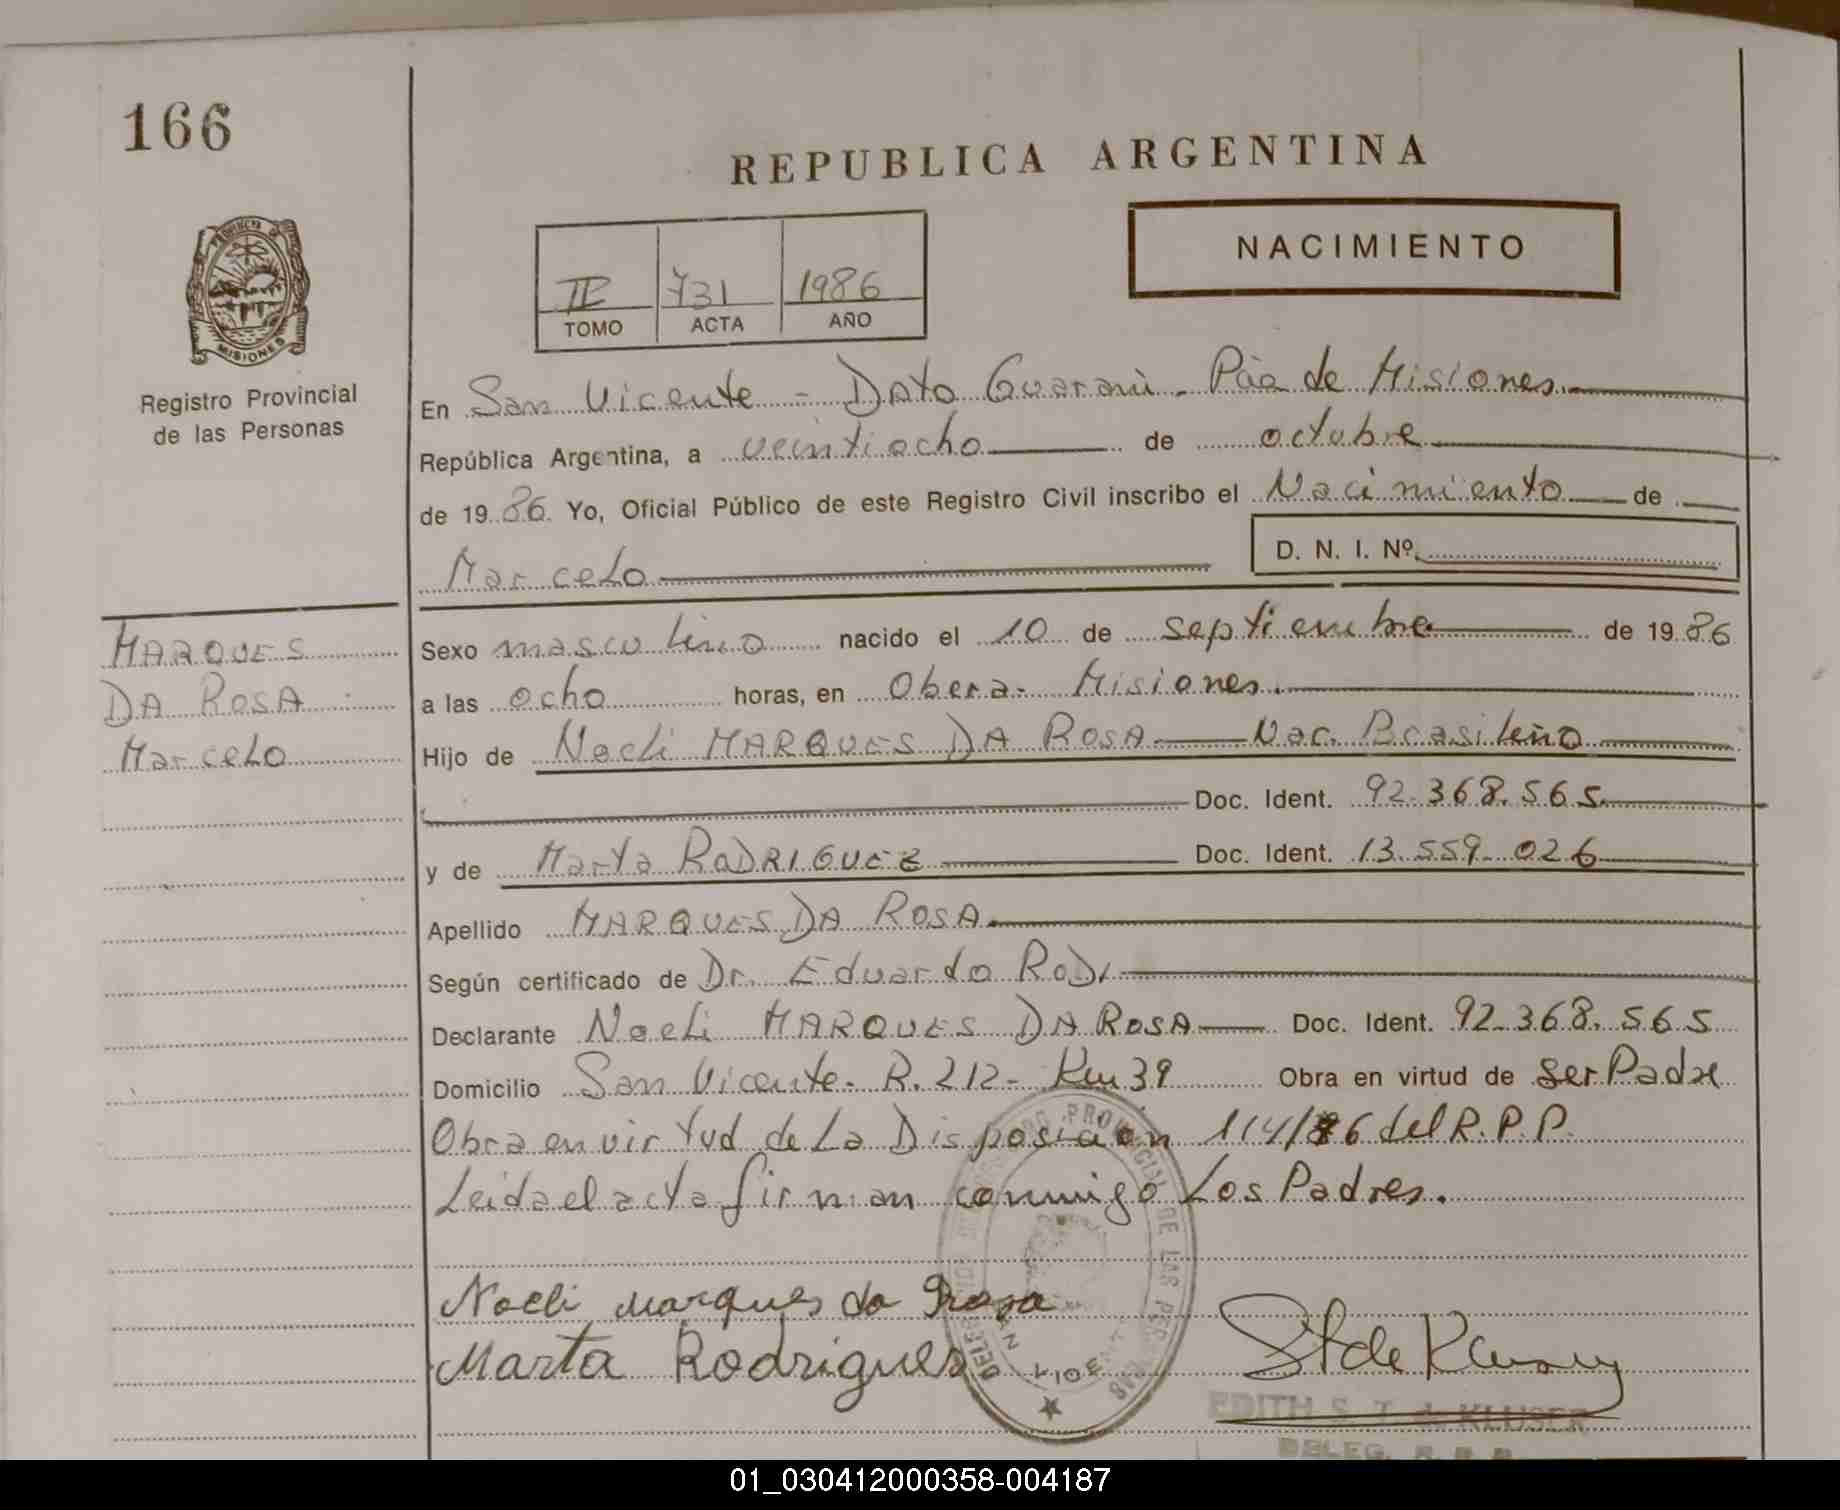 166
REPUBLICA ARGENTINA
NACIMIENTO
II 731 1986
TOMO ACTA AÑO
PROVINCIA DE
MISIONES
Registro Provincial
de las Personas
En San Vicente - Dpto Guaraní - Pcia de Misiones
República Argentina, a veintiocho de octubre
de 1986 Yo, Oficial Público de este Registro Civil inscribo el Nacimiento de
Marcelo D. N. I. Nº
MARQUES
DA ROSA
Marcelo
Sexo masculino nacido el 10 de septiembre de 1986
a las ocho horas, en Obera - Misiones.
Hijo de Noeli MARQUES DA ROSA Nac. Brasileño
Doc. Ident. 92.368.565
y de Marta RODRIGUEZ Doc. Ident. 13.559.026
Apellido MARQUES DA ROSA
Según certificado de Dr. Eduardo RODI
Declarante Noeli MARQUES DA ROSA Doc. Ident. 92.368.565
Domicilio San Vicente - R. 212 - Km 39 Obra en virtud de ser Padre
Obra en virtud de La Disposición 114/86 del R.P.P.
Leida el acta firman conmigo Los Padres.
Noeli Marques da Rosa
Marta Rodrigues
EDITH S. T. de KLUSER
DELEG. R. P. P.
01_030412000358-004187